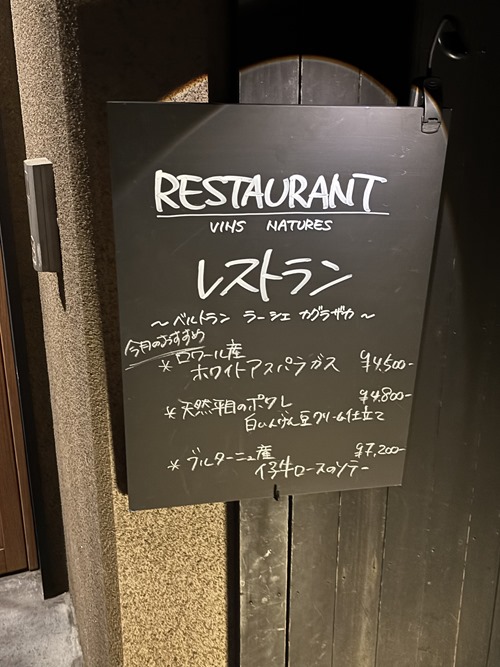 RESTAURANT
VINS NATURES
レストラン
～ベルトラン ラーシェ カグラザカ～
今月のおすすめ
*ロワール産
ホワイトアスパラガス ¥4,500-
*天然平目のポワレ ¥4,800-
白いんげん豆クリーム仕立て
*ブルターニュ産 ¥7,200-
仔牛ロースのソテー